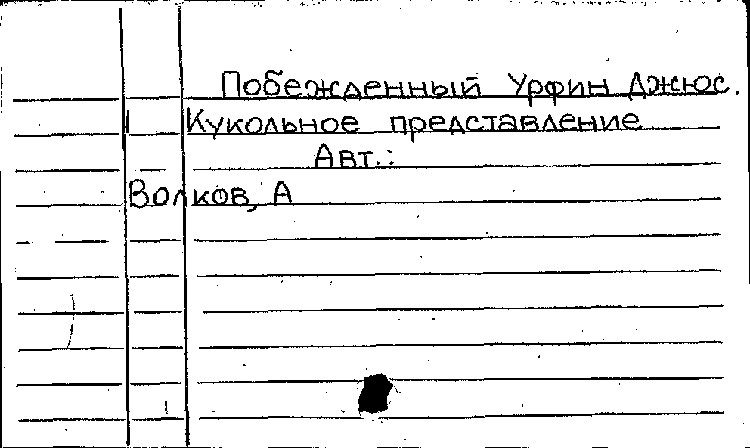 Побежденный Урфин Джюс.
Кукольное представление
Авт.:
Волков, А